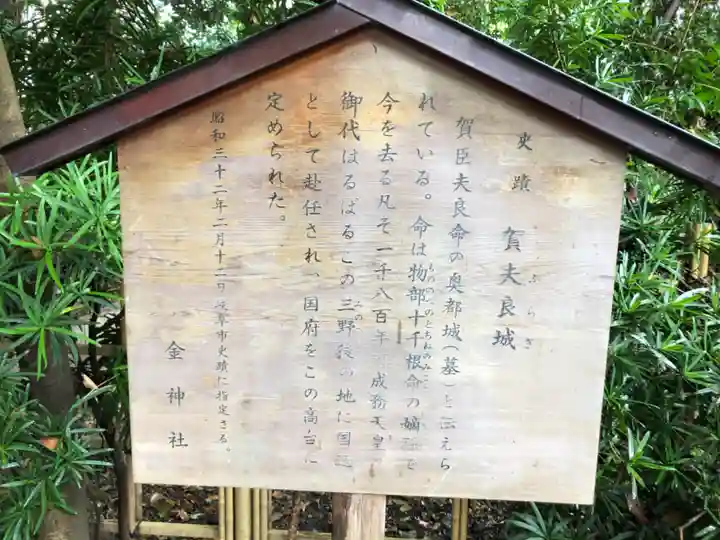 史蹟 賀夫良城
ぶらぎ
賀臣夫良命の奥都城(墓)と伝えら
れている。命は物部十千根命の嫡
もののべのとちねのみこと
今を去る凡そ一千八百年 成務天皇
御代はるばるこの三野 の地に国造
みの
として赴任され、国府をこの高台に
定められた。
昭和三十二年二月十二日 岐阜市史蹟に指定さる。
金神社